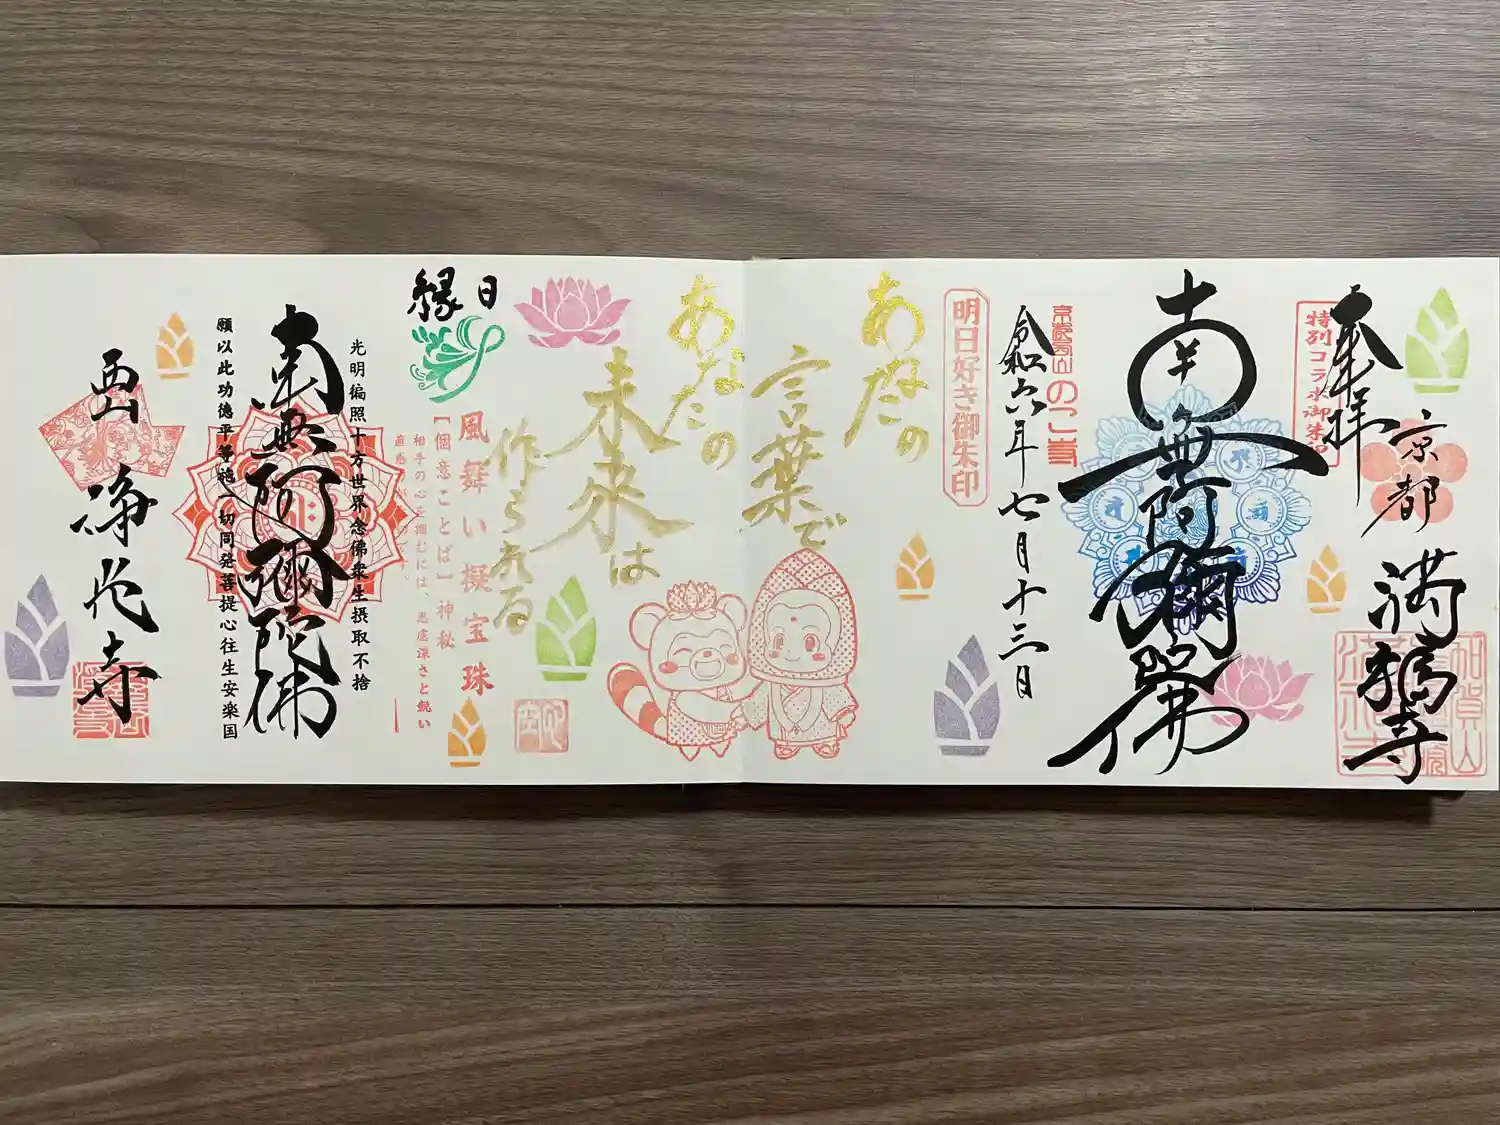 奉拝
特別コラボ御朱印
京都
満福寺
南無阿彌陀佛
令和六年七月十三日
明日好き御朱印
あなたの
言葉で
あなたの
未来は
作られる
縁日
風舞い擬宝珠
【個意ことば】神秘
相手の心を掴むには、思慮深さと鋭い
直感
光明徧照十方世界念佛衆生摂取不捨
南無阿彌陀佛
願以此功徳平等施一切同発菩提心往生安楽国
西山
浄花寺